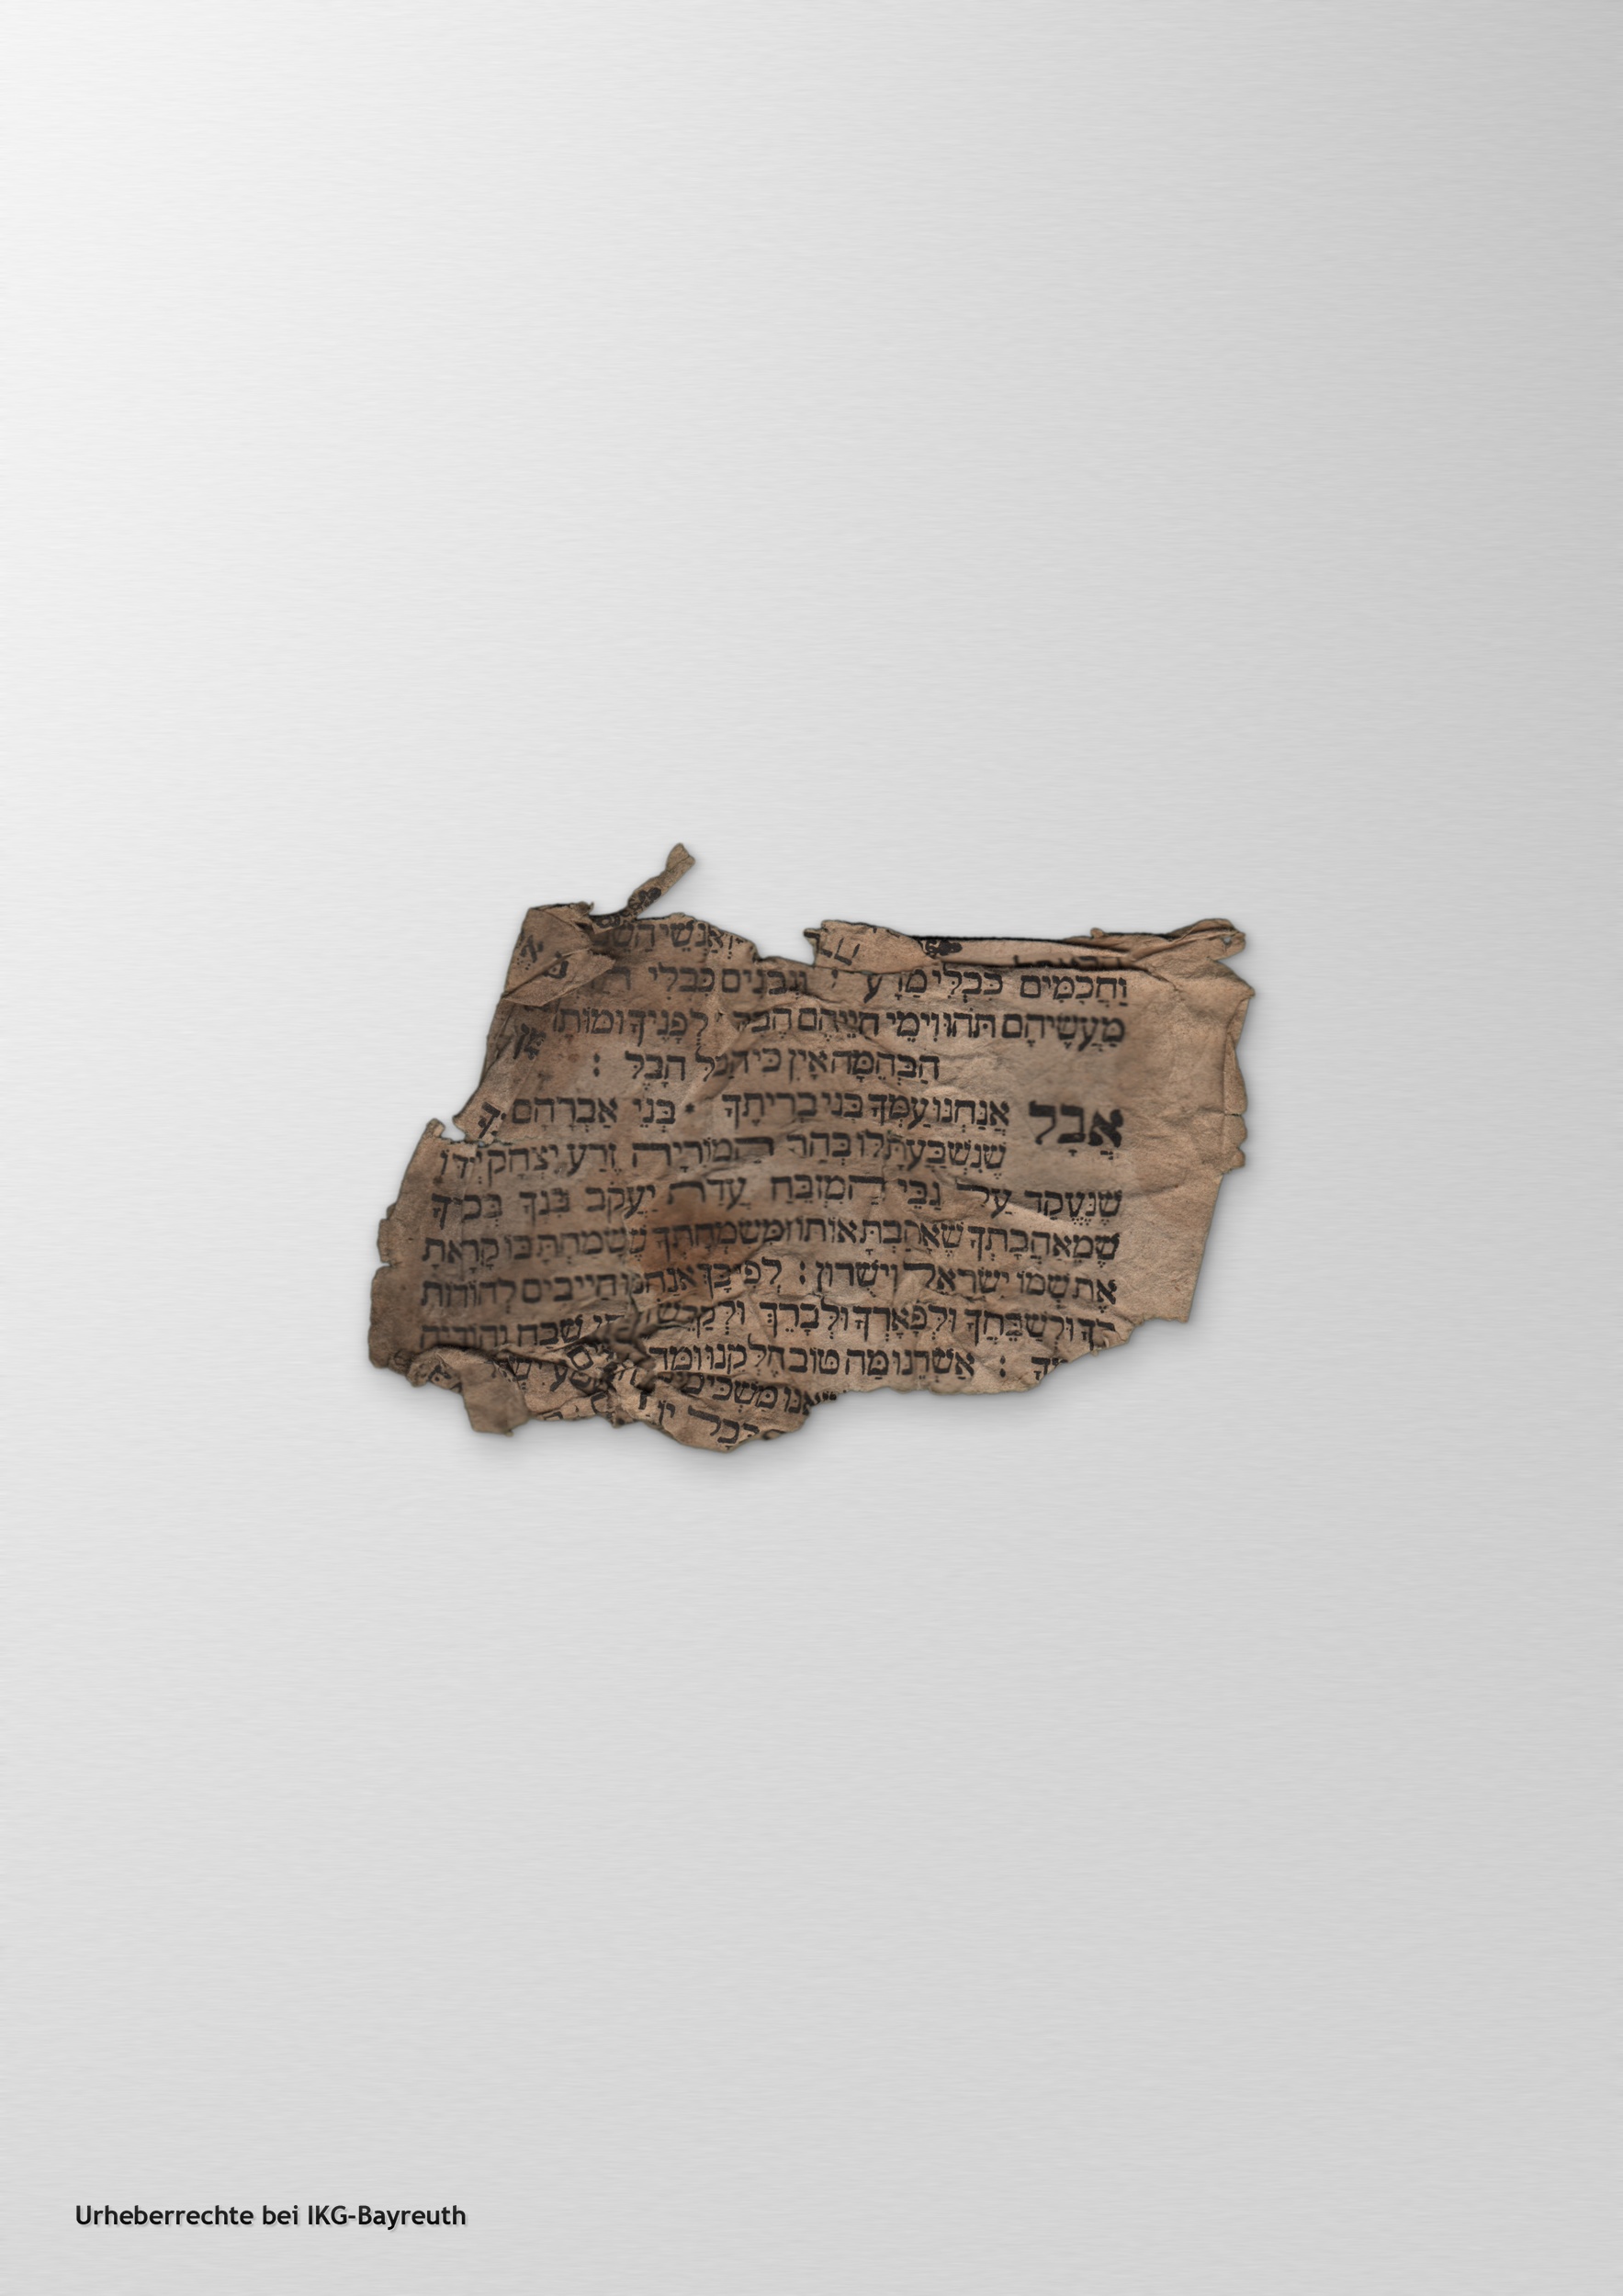 וְאַנְשֵׁי הַשֵּׁם
וַחֲכָמִים כִּבְלִי מַדָּע וּנְבוֹנִים כִּבְלִי
מַעֲשֵׂיהֶם תֹּהוּ וִימֵי חַיֵּיהֶם הֶבֶל לְפָנֶיךָ וּמוֹתַר
הַבְּהֵמָה אָיִן כִּי הַכֹּל הָבֶל :
אֲבָל אֲנַחְנוּ עַמְּךָ בְּנֵי בְרִיתֶךָ בְּנֵי אַבְרָהָם
שֶׁנִּשְׁבַּעְתָּ לּוֹ בְּהַר הַמּוֹרִיָּה זֶרַע יִצְחָק יְחִידוֹ
שֶׁנֶּעֱקַד עַל גַּבֵּי הַמִּזְבֵּחַ עֲדַת יַעֲקֹב בִּנְךָ בְּכֹרֶךָ
שֶׁמֵּאַהֲבָתְךָ שֶׁאָהַבְתָּ אוֹתוֹ וּמִשִּׂמְחָתְךָ שֶׁשָּׂמַחְתָּ בּוֹ קָרָאתָ
אֶת שְׁמוֹ יִשְׂרָאֵל וִישֻׁרוּן : לְפִיכָךְ אֲנַחְנוּ חַיָּיבִים לְהוֹדוֹת
לְךָ וּלְשַׁבֵּחֲךָ וּלְפָאֶרְךָ וּלְבָרֵךְ וּלְקַדֵּשׁ שֶׁבַח וְהוֹדָיָה
: אַשְׁרֵנוּ מַה טּוֹב חֶלְקֵנוּ וּמַה
אָנוּ מַשְׁכִּימִים
בְּכָל יוֹם
Urheberrechte bei IKG-Bayreuth